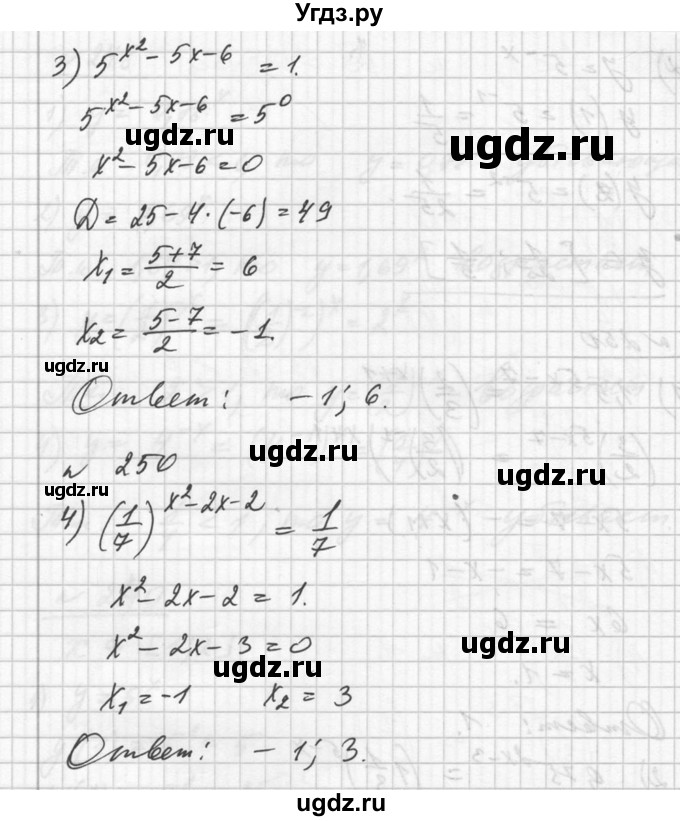 Угдз.ру
3) 5^{x² - 5x - 6} = 1.
5^{x² - 5x - 6} = 5⁰
ugdz.ru
ugdz.ru
x² - 5x - 6 = 0
D = 25 - 4 · (-6) = 49
x₁ = (5+7)/2 = 6
x₂ = (5-7)/2 = -1.
ugdz.ru
Ответ: -1; 6.
ugdz.ru
№ 250
ugdz.ru
ugdz.ru
4) (1/7)^{x² - 2x - 2} = 1/7
x² - 2x - 2 = 1.
x² - 2x - 3 = 0
ugdz.ru
ugdz.ru
x₁ = -1 x₂ = 3
Ответ: -1; 3.
ugdz.ru
ugdz.ru